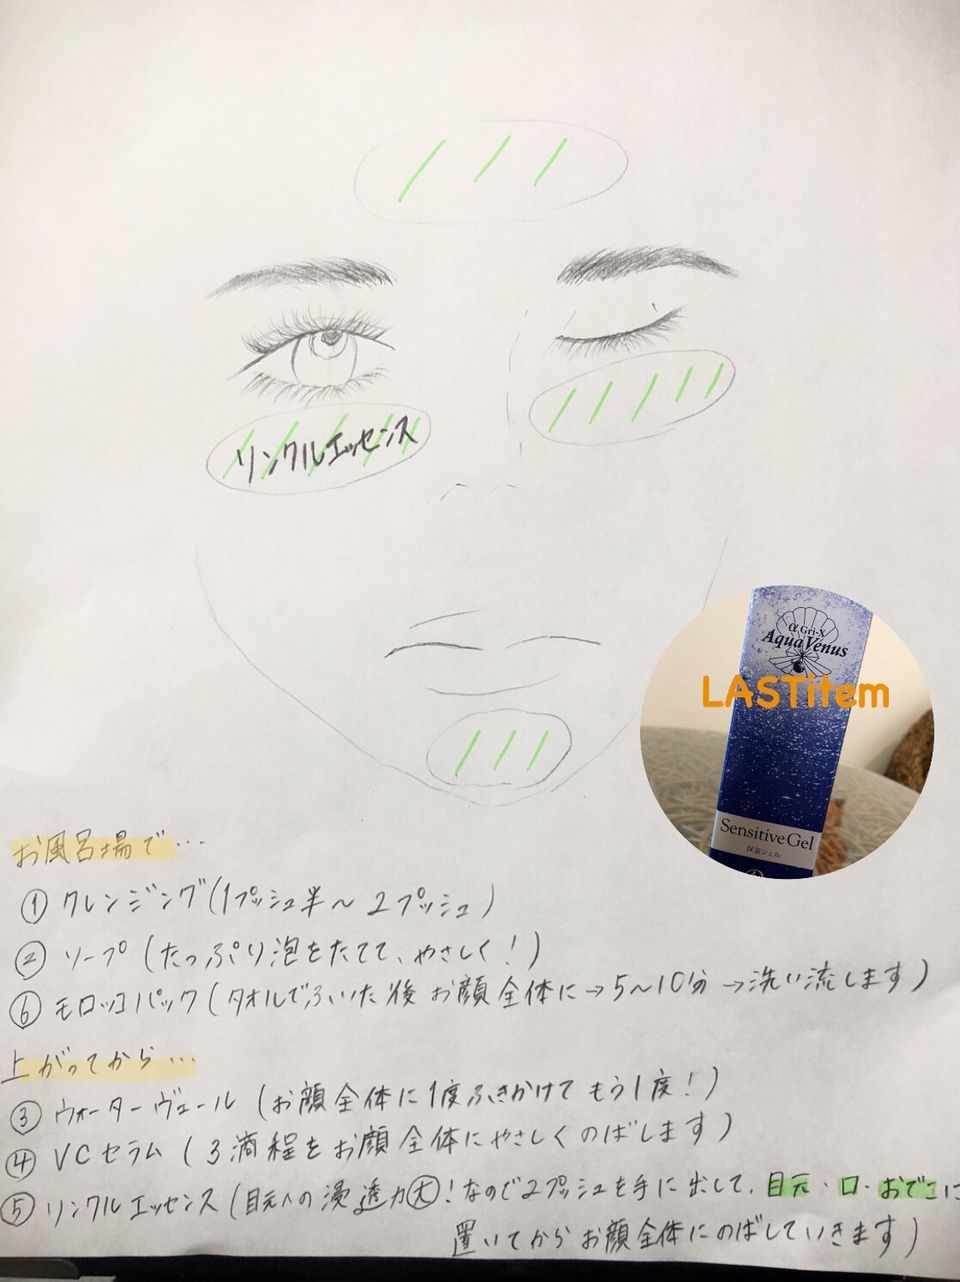 リンクルエッセンス
α Gri-X
Aqua Venus
LASTitem
Sensitive Gel
保湿ジェル
お風呂場で…
① クレンジング(1プッシュ半〜2プッシュ)
② ソープ(たっぷり泡をたてて、やさしく!)
⑥ モロッコパック(タオルでふいた後 お顔全体に→5〜10分→洗い流します)
上がってから…
③ ウォーターヴェール(お顔全体に1度ふきかけて もう1度!)
④ VCセラム(3滴程をお顔全体にやさしくのばします)
⑤ リンクルエッセンス(目元への浸透力大!なので2プッシュを手に出して、目元・口・おでこに
置いてからお顔全体にのばしていきます)